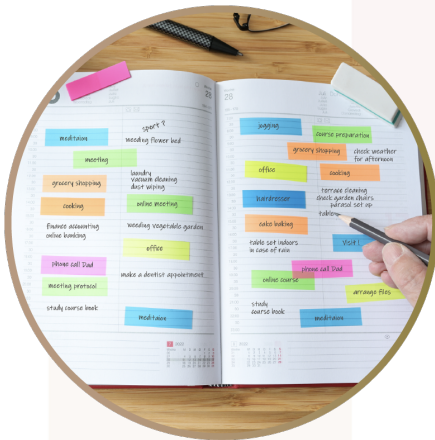 28
29
meditaion
sport ?
weeding flower bed
meeting
laundry
vacuum cleaning
dust wiping
grocery shopping
cooking
online meeting
finance accounting
online banking
weeding vegetable garden
office
phone call Dad
make a dentist appointment
meeting protocol
study course book
meditaion
jogging
course preparation
grocery shopping
check weather
for afternoon
office
cooking
terrace cleaning
check garden chairs
parasol set up
hairdresser
table
cake baking
table set indoors
in case of rain
visit
phone call Dad
online course
arrange files
study
course book
meditaion